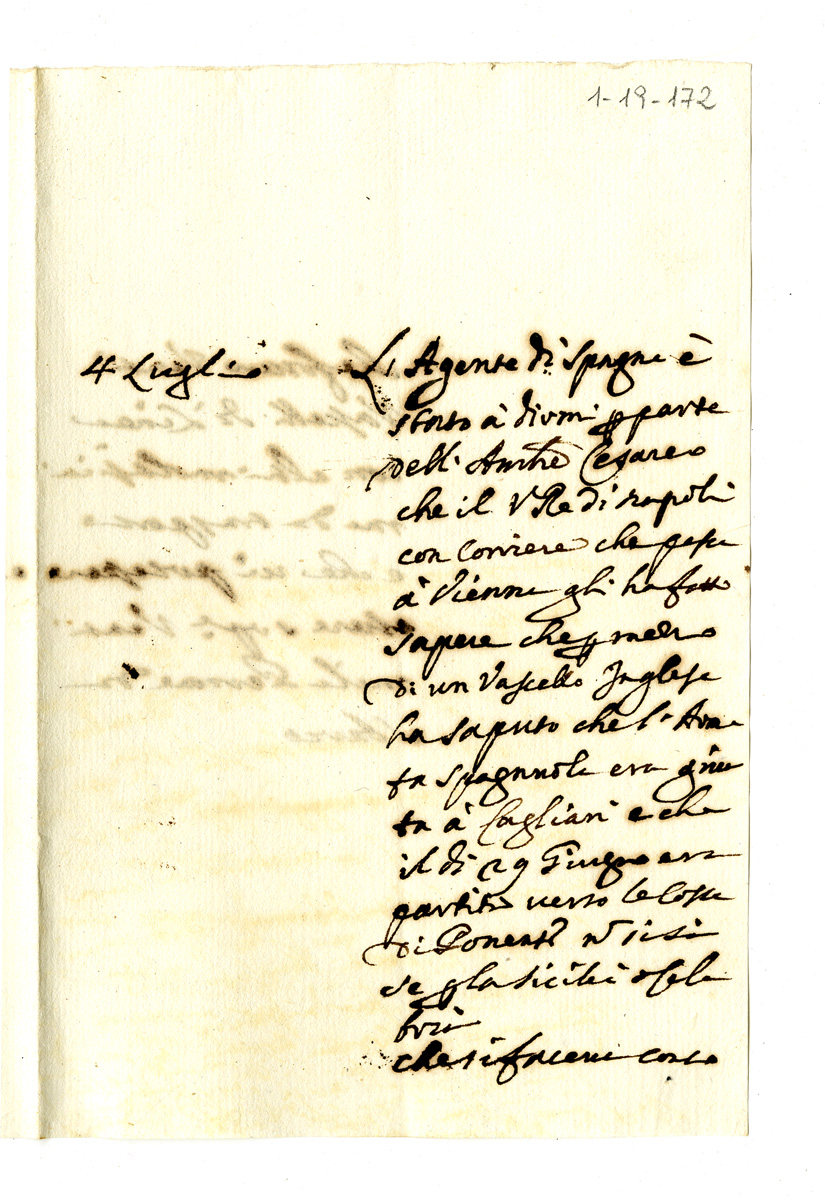 1-19-172
4 Luglio
L'Agente di Spagna è
stato à dirmi p parte
dell' Ambre Cesareo
che il V Re di Napoli
con Corriere che passa
à Vienna gli ha fatto
sapere che p mezo
di un Vascello Inglese
ha saputo che l'Arma
ta spagnuola era giun
ta à Cagliari e che
il di 29 Giugno era
partita verso le Coste
di Ponente nè si sà
se p la Sicilia o Cala
bria
che si faceva conto